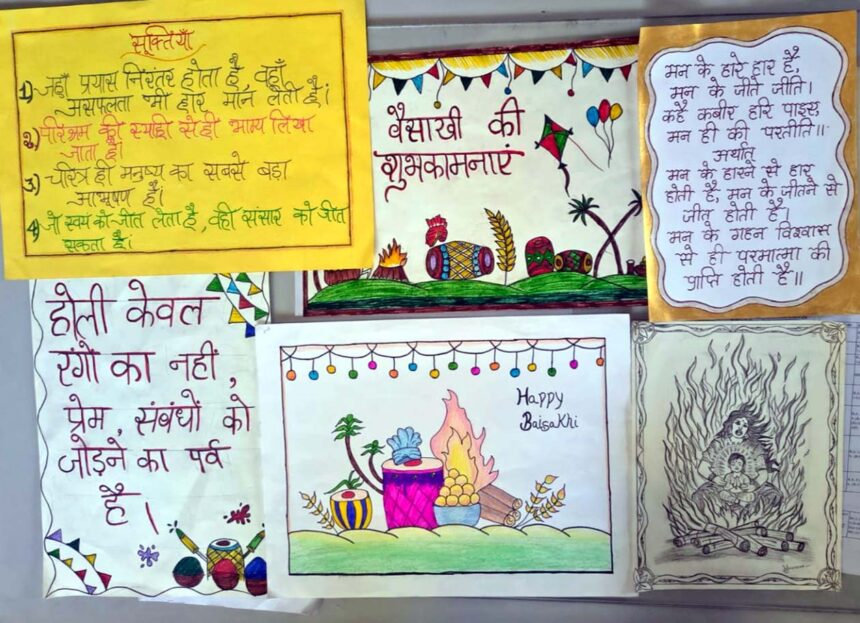 सूक्तियाँ
1) जहाँ प्रयास निरंतर होता है, वहाँ
असफलता भी हार मान लेती है।
2) परिश्रम की स्याही से ही भाग्य लिखा
जाता है।
3) चरित्र ही मनुष्य का सबसे बड़ा
आभूषण है।
4) जो स्वयं को जीत लेता है, वही संसार को जीत
सकता है।
वैसाखी की
शुभकामनाएं
मन के हारे हार है,
मन के जीते जीति।
कहै कबीर हरि पाइए,
मन ही की परतीति॥
अर्थात्
मन के हारने से हार
होती है, मन के जीतने से
जीत होती है।
मन के गहन विश्वास
से ही परमात्मा की
प्राप्ति होती है॥
होली केवल
रंगों का नहीं,
प्रेम, संबंधों को
जोड़ने का पर्व
है।
Happy
Baisakhi